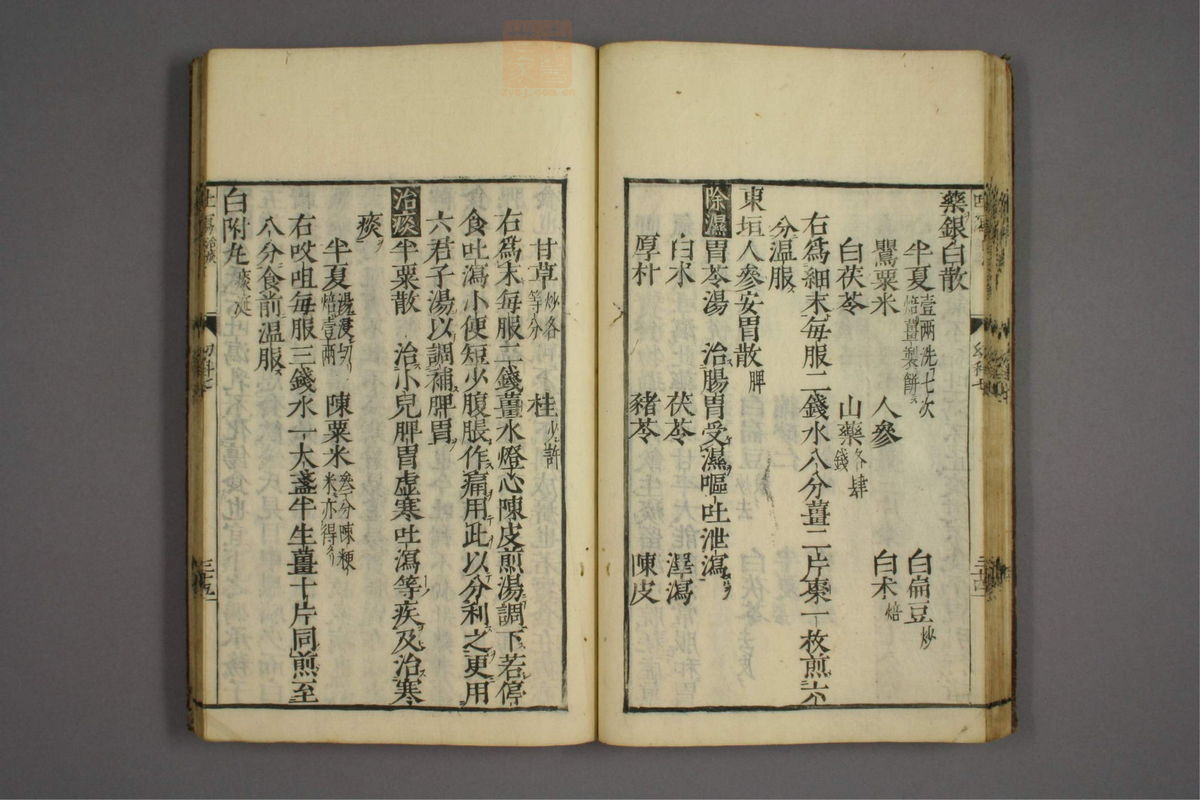 藥銀白散
半夏壹兩洗七次焙薑製餅ス 白扁豆炒
鸎粟米 人參 白术焙
白茯苓 山藥各肆錢
右爲細末每服二錢水八分薑二片棗一枚煎六
分溫服ス
東垣人參安胃散脾
除濕胃苓湯 治腸胃受濕嘔吐泄瀉
白术 茯苓 澤瀉
厚朴 豬苓 陳皮
甘草炒各等分 桂少許
右爲末每服二錢薑水燈心陳皮煎湯調下若停
食吐瀉小便短少腹脹作痛用此以分利之更用
六君子湯以調補脾胃
治痰半粟散 治小兒脾胃虛寒吐瀉等疾及治寒
痰
半夏湯浸切焙壹兩 陳粟米叄分陳粳米亦得
右㕮咀每服三錢水一大盞半生薑十片同煎至
八分食前溫服
白附丸痰涎